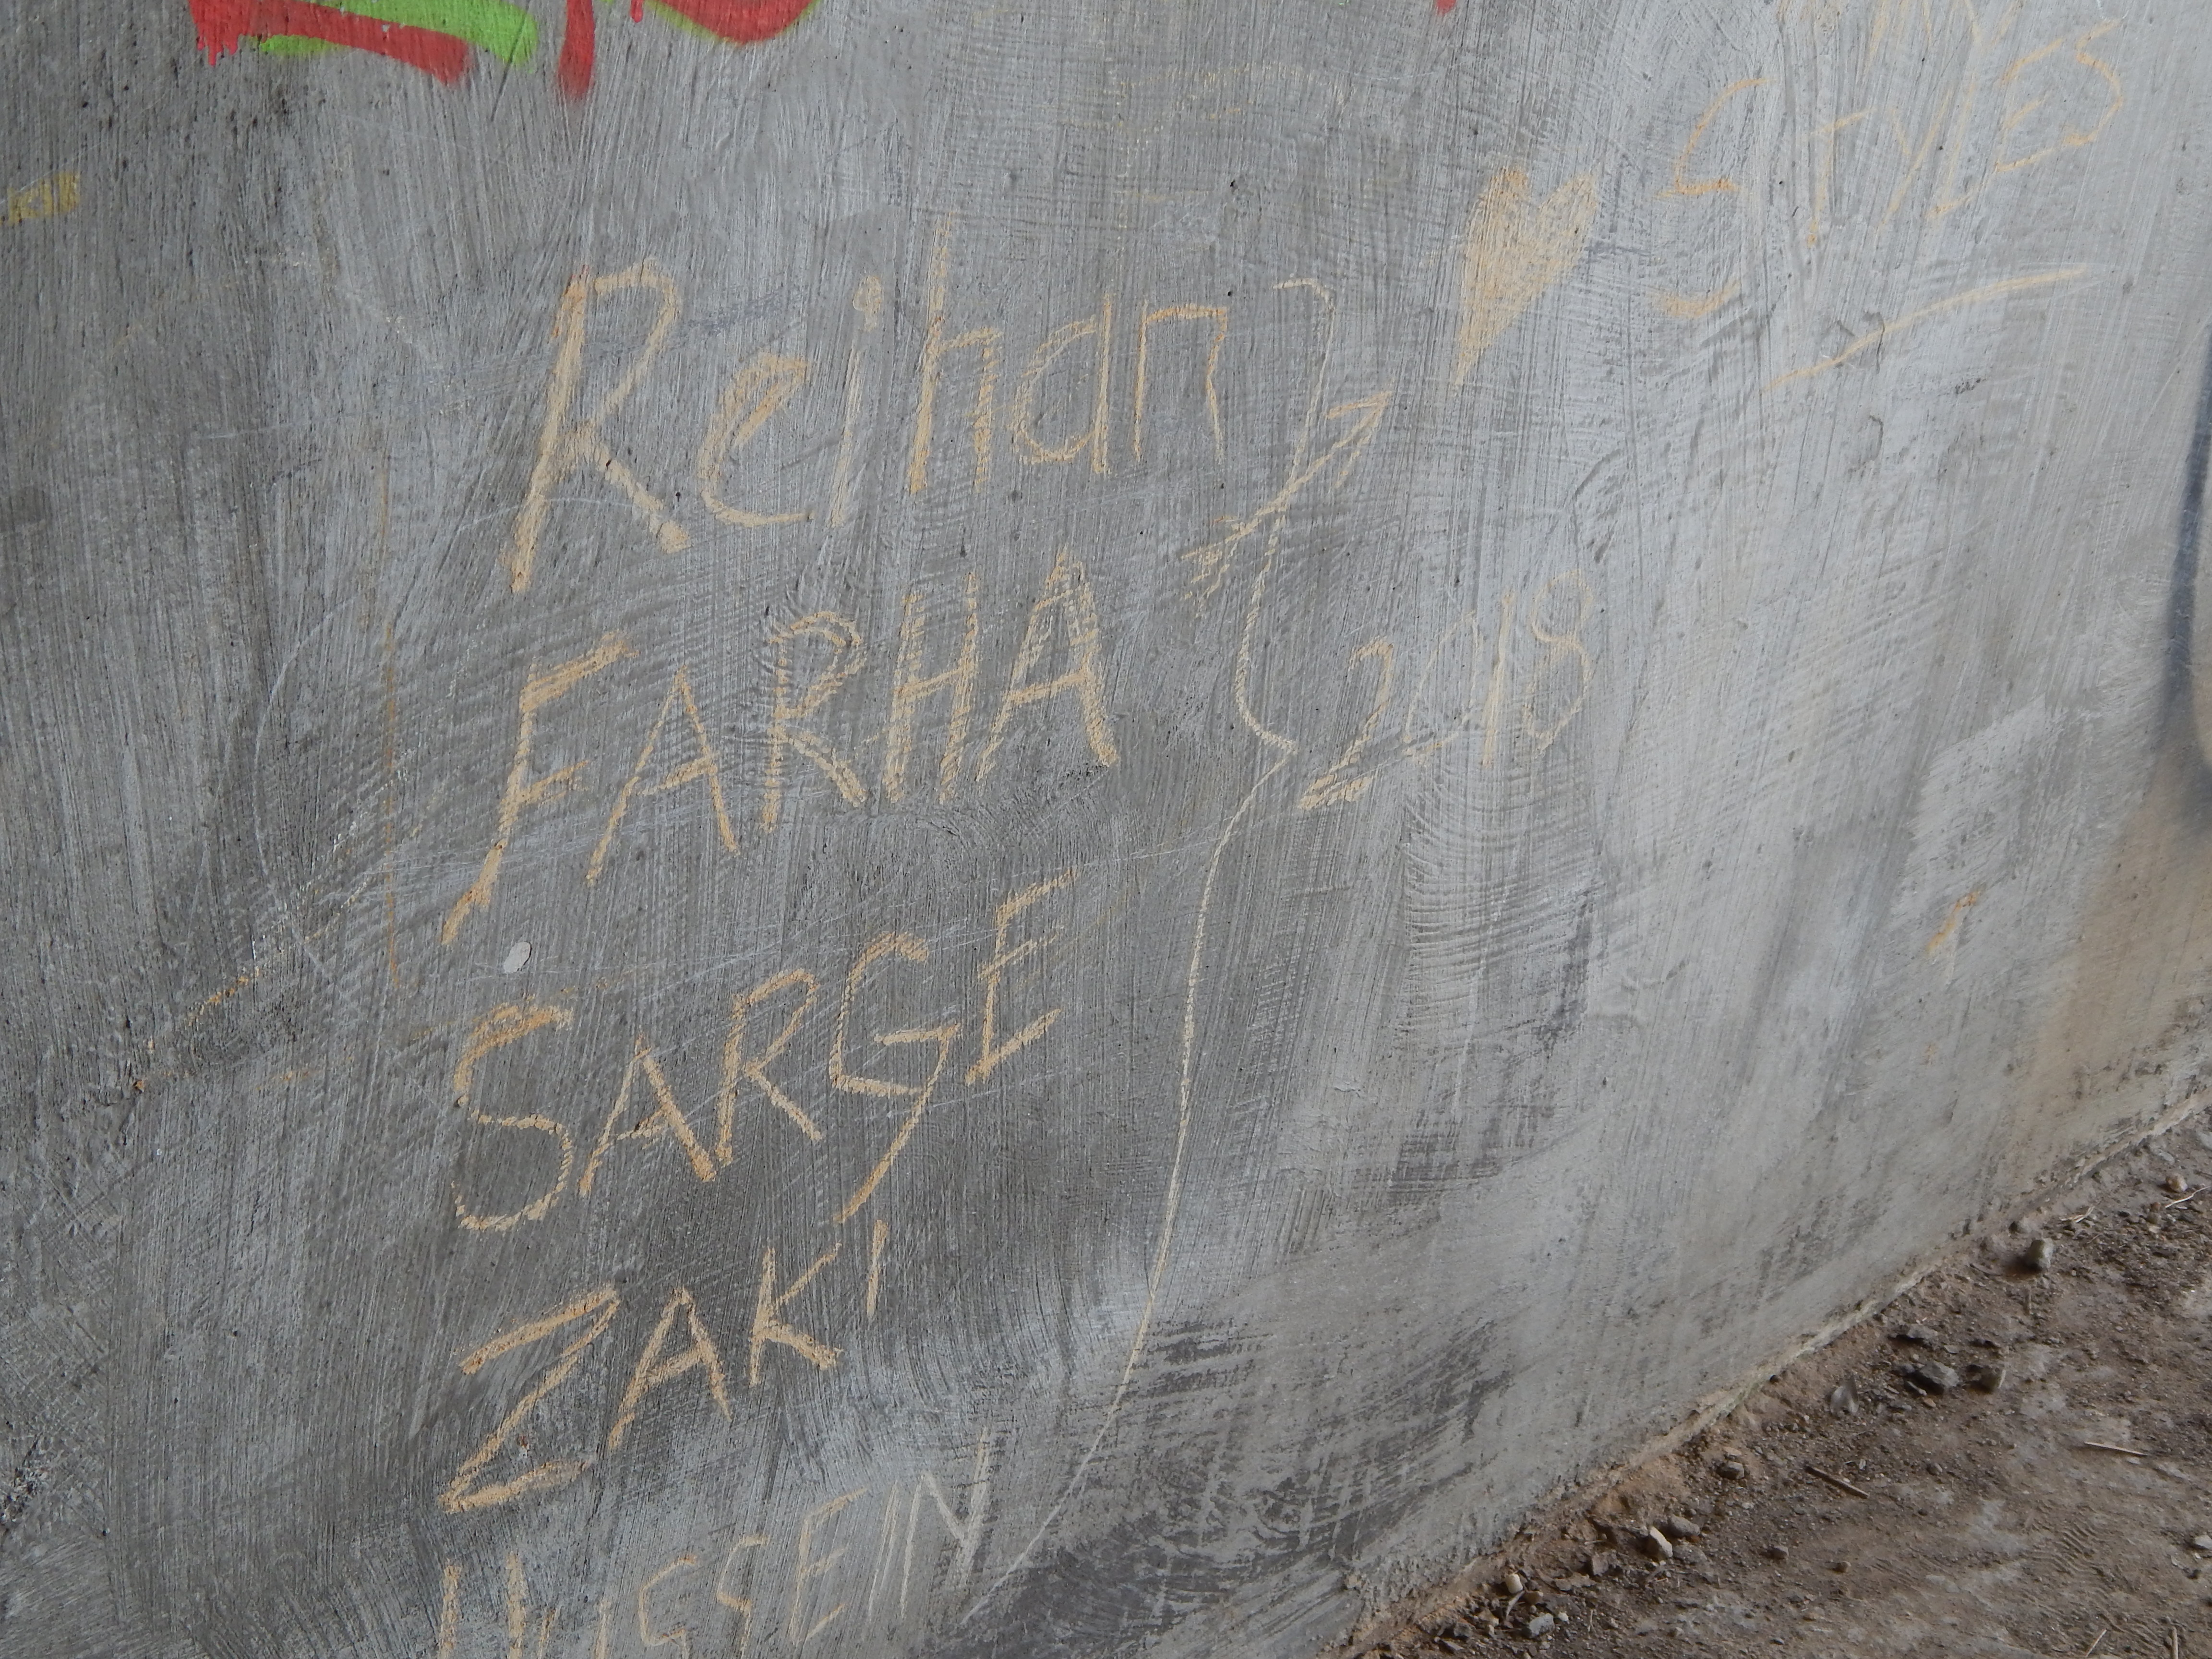 STYLES
Reihan
FARHA
2018
SARGE
ZAKI
HUSSEIN